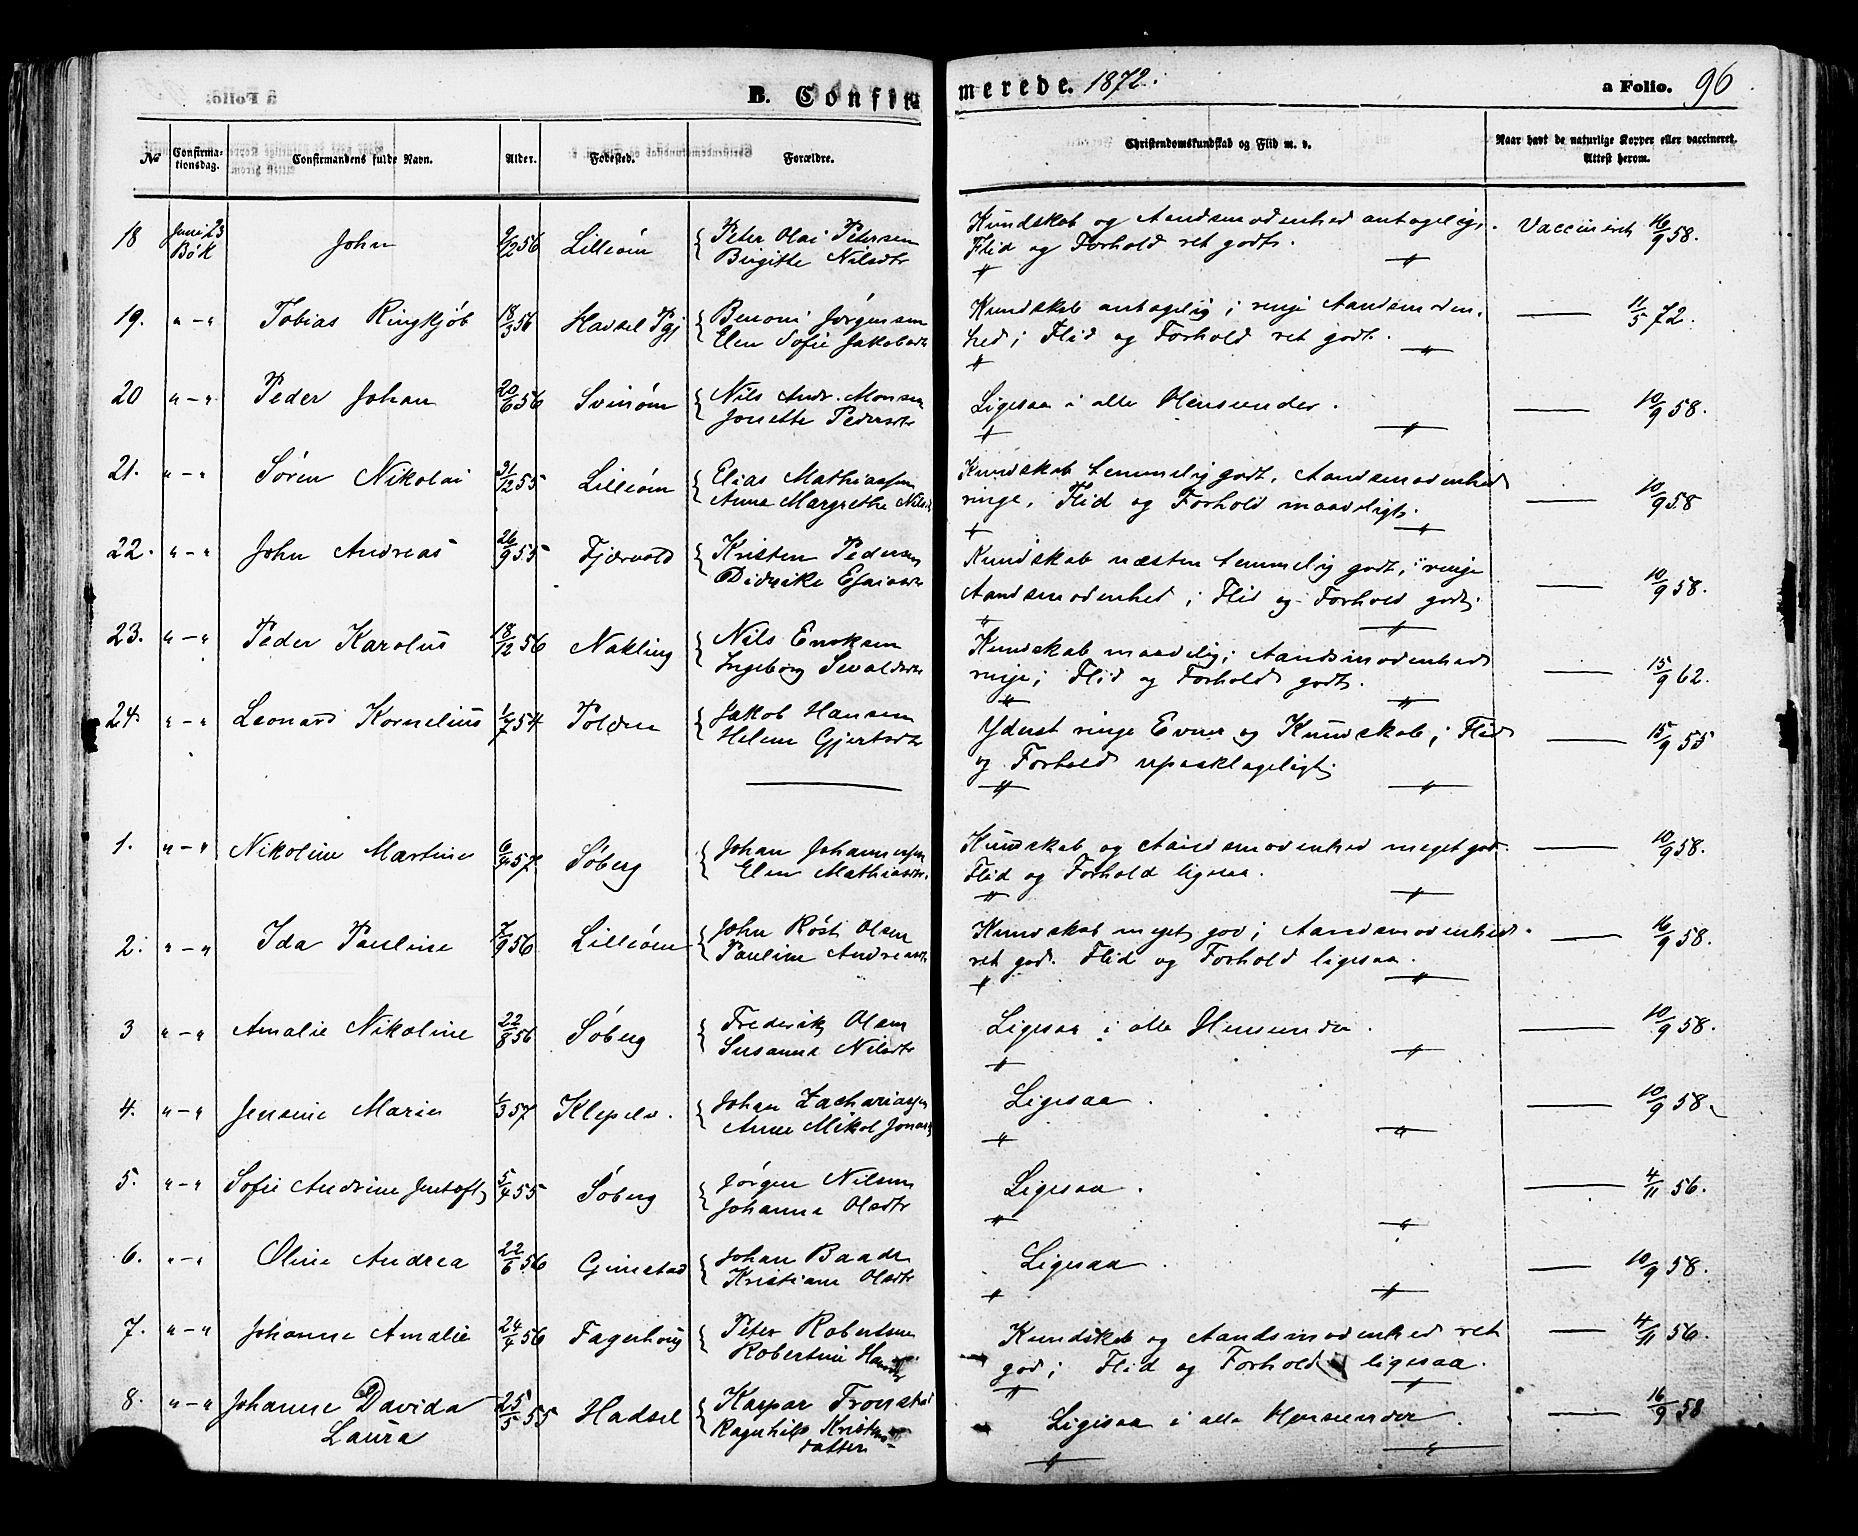 B. Confirmerede. 1872. a Folio. 96
No Confirmationsdag. Confirmandens fulde Navn. Alder. Fødested. Forældre. Christendomskundskab og Flid m. v. Naar havt de naturlige Kopper eller vaccineret. Attest herom.
18 Juni 23 Bök John 9/2 56 Lilleöm { Peter Olai Petersen Kundskab og Aandsmodenhed antagelig, Vaccineret 16/9 58.
Birgitte Nilsdtr Flid og Forhold ret godt.
19. " - " Tobias Ringkjöb 18/3 56 Hadsel Pgj { Benoni Jörgensen Kundskab antagelig; ringe Aandsmoden- — 11/5 72.
Elen Sofie Jakobsdtr hed; Flid og Forhold ret godt.
20 " - " Peder Johan 20/6 56 Svinöm { Nils Andr. Monsen Ligesaa i alle Henseender. — 10/9 58.
Jonette Pedersdtr
21. " - " Sören Nikolai 31/12 55 Lilleöm { Elias Mathiassen Kundskab temmelig godt, Aandsmodenhed — 10/9 58
Anna Margrethe Nilsd ringe, Flid og Forhold maadeligt.
22. " - " John Andreas 26/9 55 Fjærvold { Kristen Pedersen Kundskab næsten temmelig godt, ringe — 10/9 58.
Didrikke Esaiasdtr Aandsmodenhet; Flid og Forhold godt;
23. " - " Peder Karolus 18/12 56 Nakling { Nils Eriksen Kundskab maadelig; Aandsmodenhed — 15/9 62.
Ingeborg Sivaldsdtr ringe; Flid og Forhold godt.
24. " - " Leonard Kornelius 1/7 54 Polden { Jakob Hansen Yderst ringe Evner og Kundskab; Flid — 15/9 55
Helene Gjertsdtr og Forhold upaaklageligt;
1. " - " Nikoline Martine 6/4 57. Söberg { Johan Johannessen Kundskab og Aandsmodenhed meget god. — 10/9 58.
Elen Mathiasdtr. Flid og Forhold ligesaa.
2. " - " Ida Pauline 7/9 56 Lilleöm { John Röst Olsen Kundskab meget god; Aandsmodenhed — 16/9 58.
Pauline Andreasdtr ret god. Flid og Forhold ligesaa.
3 " - " Amalie Nikoline 22/8 56 Söberg { Frederik Olsen Ligesaa i alle Henseender. — 10/9 58.
Susanna Nilsdtr
4. " - " Jensine Marie 1/3 57 Klepelv. { Johan Zachariassen Ligesaa. — 10/9 58.
Anne Mikol Jonasd
5. " - " Sofie Andrine Jentoft 5/4 55 Söberg { Jörgen Nilsen Ligesaa. — 4/11 56.
Johanna Olsdtr
6. " - " Oline Andrea 22/6 56 Gimstad { Johan Baade Ligesaa. — 10/9 58.
Kristiane Olsdtr
7. " - " Johanne Amalie 24/4 56 Fagerhoug { Peter Robertsen Kundskab og Aandsmodenhed ret — 4/11 56.
Robertine Hansdtr god; Flid og Forhold ligesaa.
8. " - " Johanne Davida 25/5 55 Hadsel { Kaspar Ligesaa i alle Henseender. — 16/9 58
Laura Ragnhild Kristens-
datter